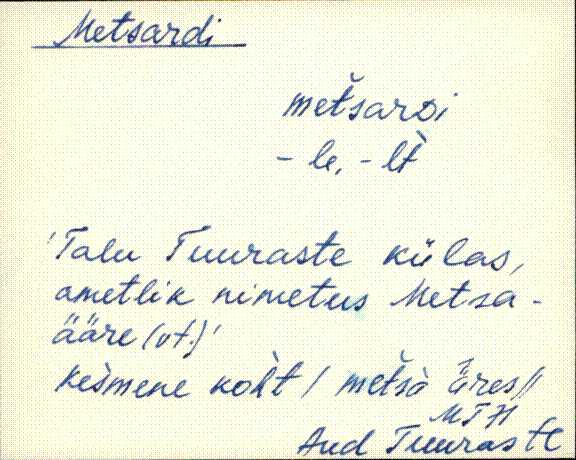 Metsardi
metšarDi
- le, - lt̀
'Talu Tuuraste külas,
ametlik nimetus Metsa-
ääre (vt.)'
kešmene koht / metšà äres //
MTH
Aud Tuuraste